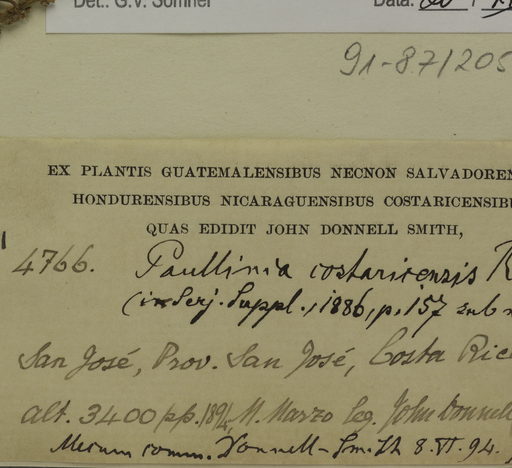 Det.: G.V. Somner Data:
91-87/205
EX PLANTIS GUATEMALENSIBUS NECNON SALVADOREN
HONDURENSIBUS NICARAGUENSIBUS COSTARICENSIBU
QUAS EDIDIT JOHN DONNELL SMITH,
4766. Paullinia costaricensis R
(in Serj. Suppl., 1886, p. 157 sub n
San José, Prov. San José, Costa Rica
alt. 3400 pp. 1894, M. Marzo leg. John Donnell
Mecum comm. Donnell-Smith 8.VI.94.